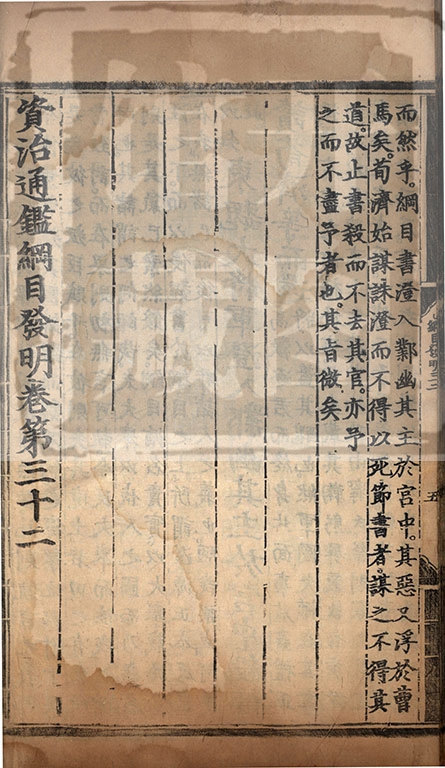 而然乎。綱目書澄入鄴幽其主於宮中。其惡又浮於曹
馬矣。荀濟始謀誅澄而不得以死節書者。謀之不得其
道。故止書殺而不去其官。亦予
之而不盡予者也。其旨微矣
資治通鑑綱目發明卷第三十二